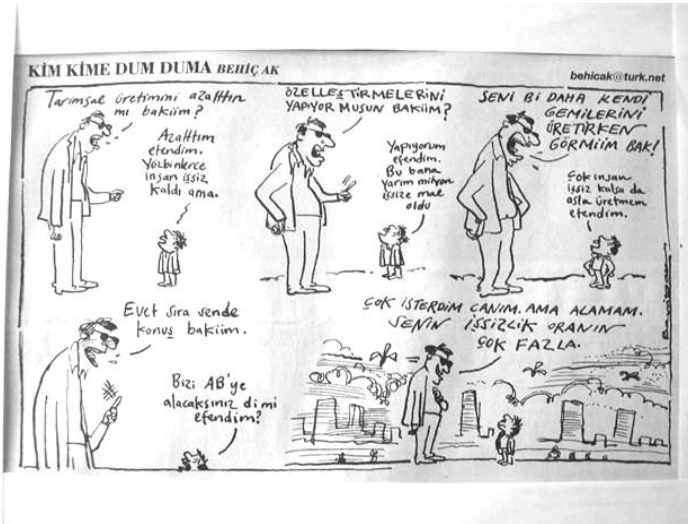 KİM KİME DUM DUMA BEHİÇ AK
behicak@turk.net
Tarımsal üretimini azalttın
mı bakiim?
Azalttım
efendim.
Yüzbinlerce
insan işsiz
kaldı ama.
ÖZELLEŞTİRMELERİNİ
YAPIYOR MUSUN BAKİİM?
Yapıyorum
efendim.
Bu bana
yarım milyon
işsize mal
oldu
SENİ Bİ DAHA KENDİ
GEMİLERİNİ
ÜRETİRKEN
GÖRMİİM BAK!
Çok insan
işsiz kalsa da
asla üretmem
efendim.
Evet sıra sende
konuş bakiim.
Bizi AB'ye
alacaksınız di mi
efendim?
ÇOK İSTERDİM CANIM. AMA ALAMAM.
SENİN İŞSİZLİK ORANIN
ÇOK FAZLA.